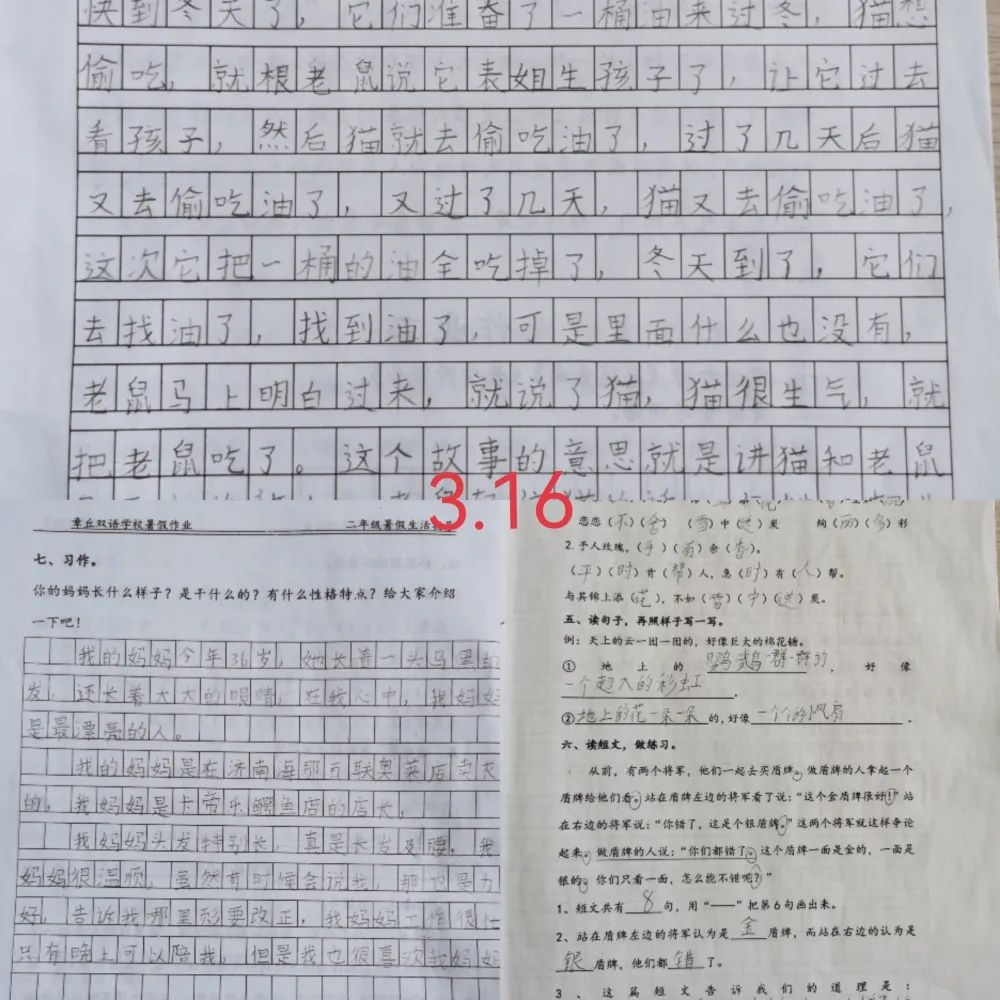 快到冬天了，它们准备了一桶油来过冬，猫想
偷吃，就根老鼠说它表姐生孩子了，让它过去
看孩子，然后猫就去偷吃油了，过了几天后猫
又去偷吃油了，又过了几天，猫又去偷吃油了，
这次它把一桶的油全吃掉了，冬天到了，它们
去找油了，找到油了，可是里面什么也没有，
老鼠马上明白过来，就说了猫，猫很生气，就
把老鼠吃了。这个故事的意思就是讲猫和老鼠
3.16
章丘双语学校暑假作业 二年级暑假生活
七、习作。
你的妈妈长什么样子？是干什么的？有什么性格特点？给大家介绍
一下吧！
我的妈妈今年36岁，她长着一头乌黑的
发，还长着大大的眼睛，在我心中，我妈妈
是最漂亮的人。
我的妈妈是在济南海那百联奥莱店卖衣
的，我妈妈是卡帝乐鳄鱼店的店长，
我妈妈头发特别长，真是长发及腰，我
妈妈很温顺，虽然有时候会说我，那也是为
好，告诉我哪里需要改正，我妈妈工作很忙
只有晚上可以陪我，但是我也很喜欢我妈妈
恋恋（不）（舍） （雪）（中）（送）炭 绚（丽）（多）彩
2.予人玫瑰，（手）（有）余（香）。
（平）（时）肯（帮）人，急（时）有（人）帮。
与其锦上添（花），不如（雪）（中）（送）炭。
五、读句子，再照样子写一写。
例：天上的云一团一团的，好像巨大的棉花糖。
① 地上的 一群一群的，好像
一个超大的彩虹。
②地上的花一朵一朵的，好像一个个的风扇。
六、读短文，做练习。
从前，有两个将军，他们一起去买盾牌。做盾牌的人拿起一个
盾牌给他们看。站在盾牌左边的将军看了说：“这个金盾牌很好！”站
在右边的将军说：“你错了，这是个银盾牌。”这两个将军就这样争论
起来。做盾牌的人说：“你们都错了。这个盾牌一面是金的，一面是
银的。你们只看一面，怎么能不错呢？”
1、短文共有 8 句，用“——”把第6句画出来。
2、站在盾牌左边的将军认为是 金 盾牌，而站在右边的认为是
银 盾牌，他们都 错 了。
3、这篇短文告诉我们的道理是：